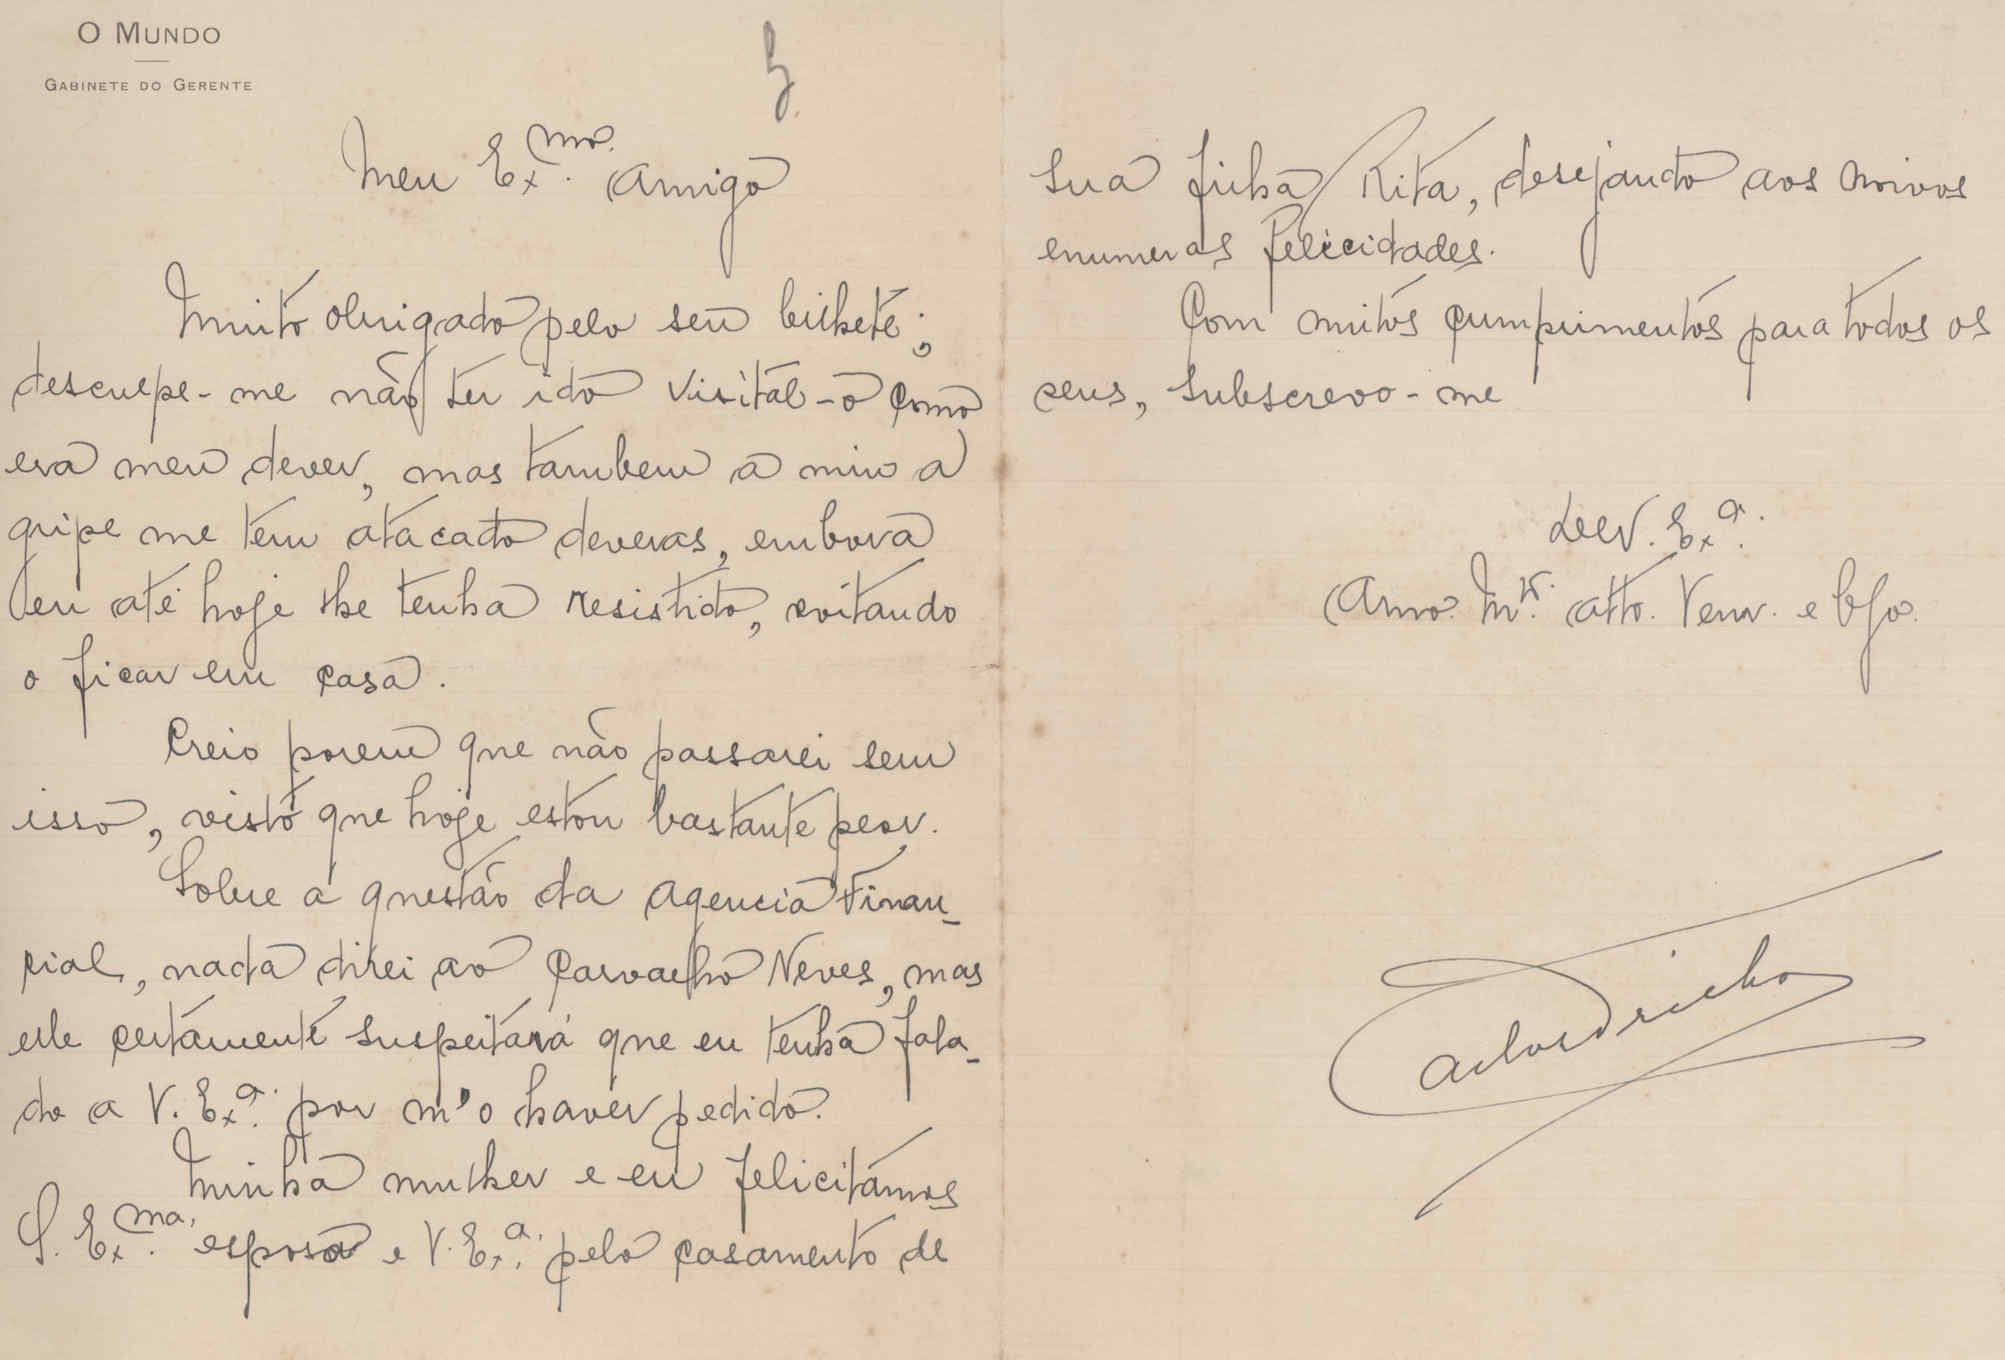 O MUNDO
GABINETE DO GERENTE
Meu Ex.mo. Amigo
Muito obrigado pelo seu bilhete;
desculpe-me não ter ido visital-o como
era meu dever, mas tambem a mim a
gripe me tem atacado deveras, embora
eu até hoje lhe tenha resistido, evitando
o ficar em casa.
Creio porem que não passarei sem
isso, visto que hoje estou bastante peor.
Sobre a questão da Agencia Finan-
cial, nada direi ao Carvalho Neves, mas
elle certamente suspeitará que eu tenha fala-
do a V. Ex.a. por m'o haver pedido.
Minha mulher e eu felicitámos
S. Ex.ma. esposa e V. Ex.a. pelo casamento de
sua filha Rita, desejando aos noivos
enumeras felicidades.
Com muitos cumprimentos para todos os
seus, subscrevo-me
De V. Ex.a.
Amo. Mto. Atto. Venr. e Obgo.